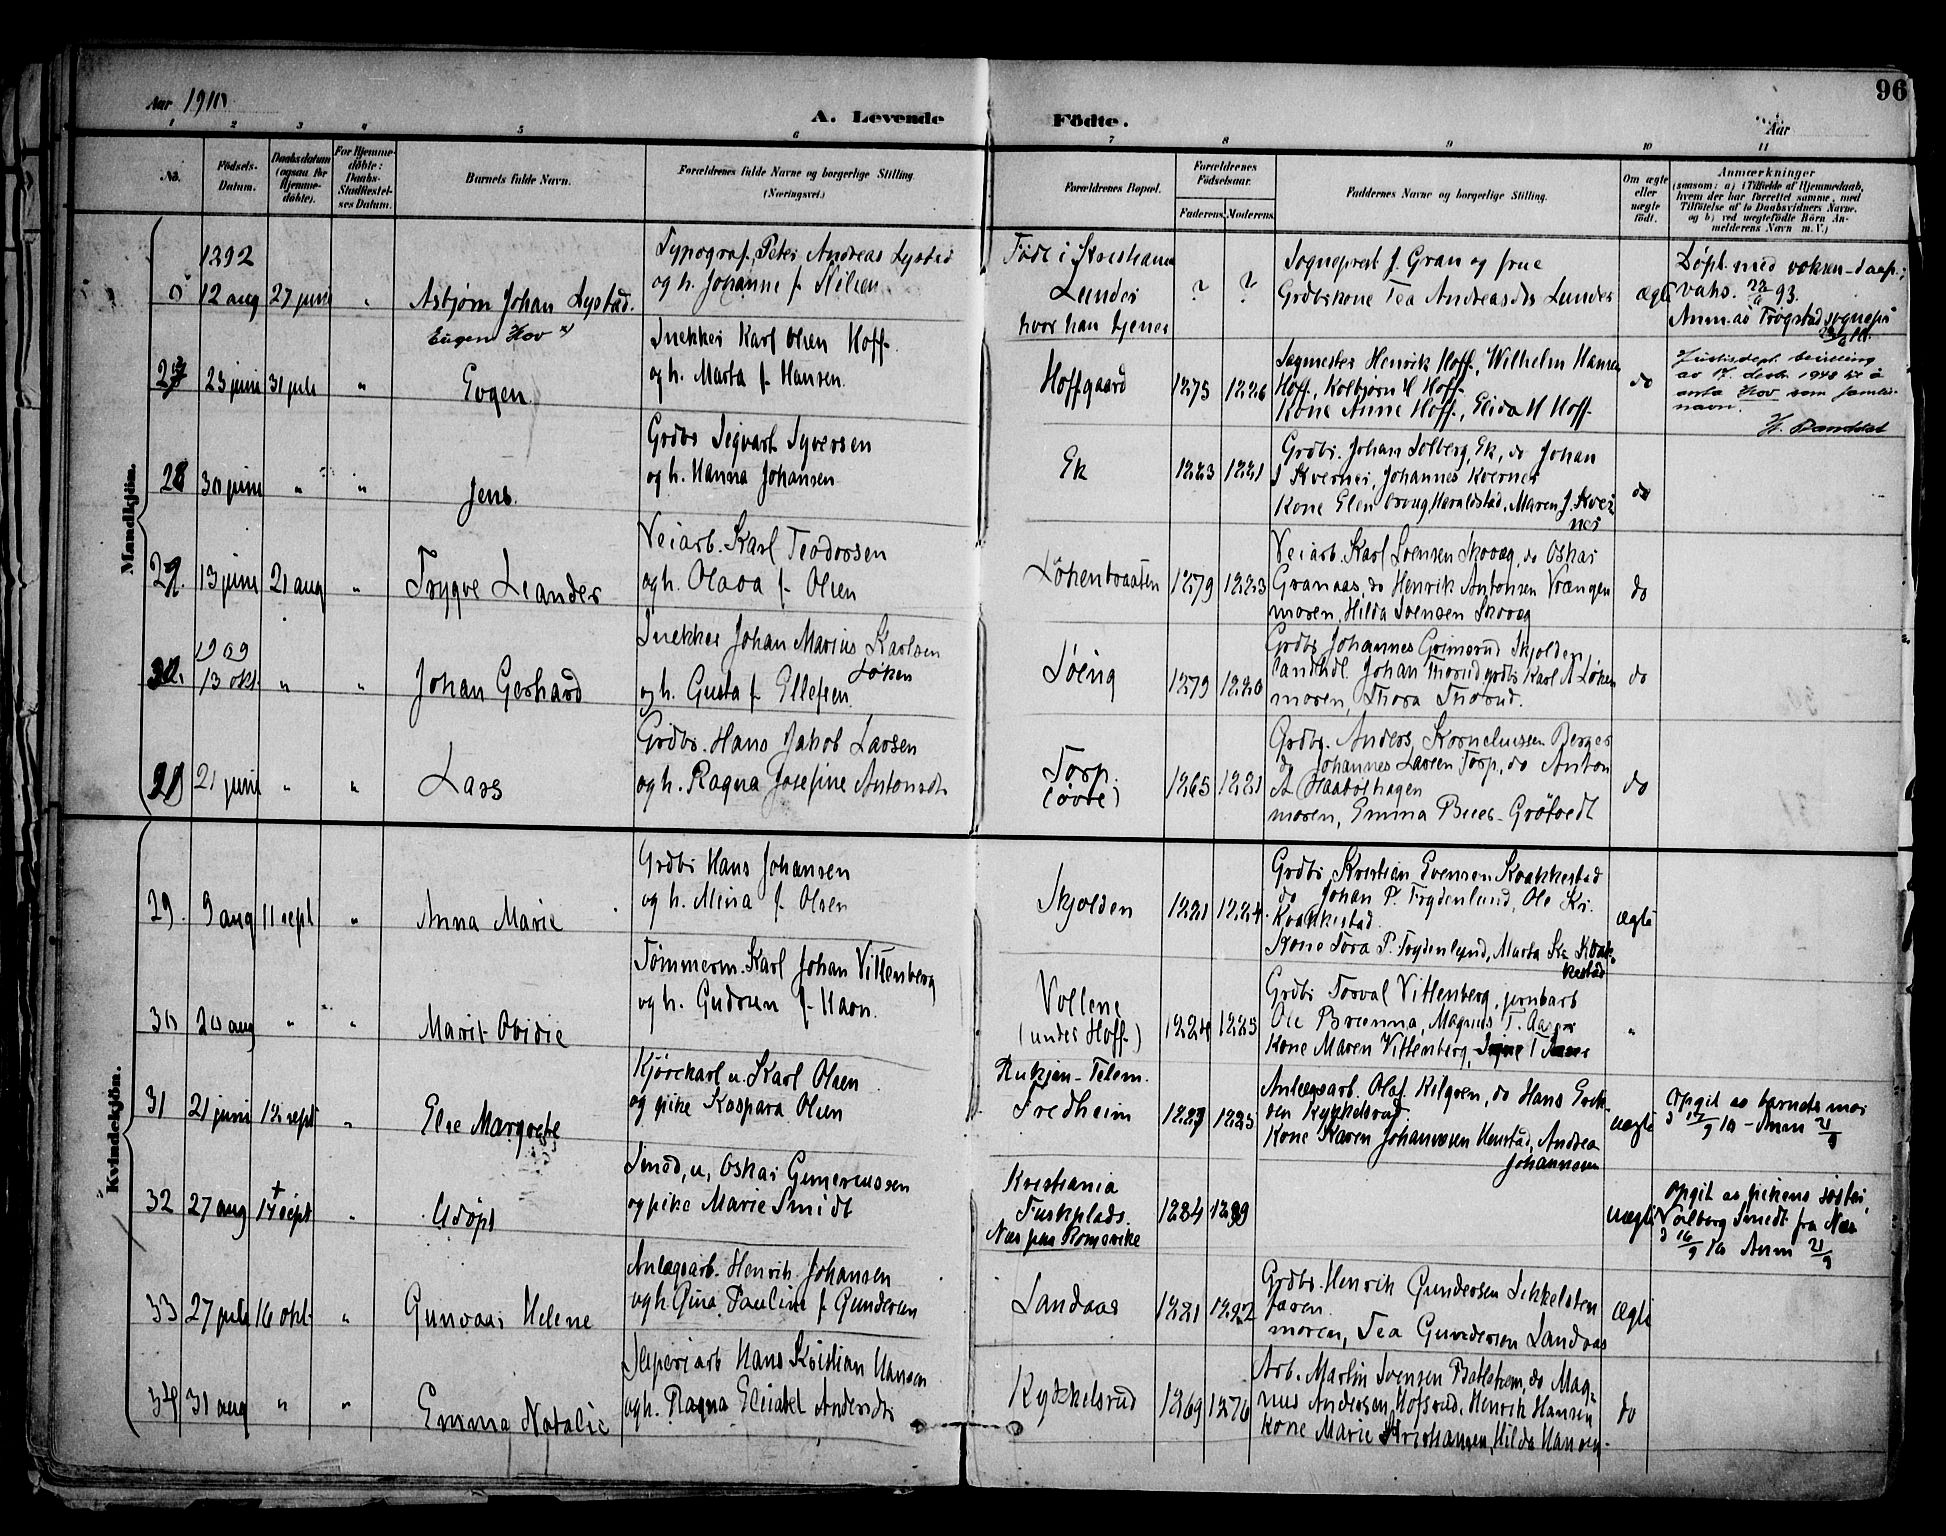 96
Aar 1910
A. Levende Födte.
Aar
1 2 3 4 5 6 7 8 9 10 11
No.
Födsels-Datum.
Daabsdatum (ogsaa for Hjemmedöbte).
For Hjemmedöbte: Daabs-Stadfæstelses Datum.
Barnets fulde Navn.
Forældrenes fulde Navne og borgerlige Stilling (Næringsvei.)
Forældrenes Bopæl.
Forældrenes Födselsaar.
Faderens. Moderens.
Faddernes Navne og borgerlige Stilling.
Om ægte eller uægte födt.
Anmærkninger
(saasom: a) i Tilfælde af Hjemmedaab,
hvem der har forrettet samme, med
Tilföielse af to Daabsvidners Navne,
og b) ved uægtefödte Börn An-
melderens Navn m. V.)
Mandkjön.
1892
12 aug 27 juni " Asbjørn Johan Lystad.
Typograf Peter Andreas Lystad
og h. Johanne f. Nilsen
Født i Kristiania
Lunder
hvor han tjener
? ?
Sogneprest f. Gran og frue
Grdbskone Tea Andreasdtr Lunder
ægte
Døpt med voksen-daap;
vahs. 93.
Anm. av Trøgstad sognepr.
27 23 juni 31 juli " Evgen
Eugen Hov x)
Snekker Karl Olsen Hoff
og h. Marta f. Hansen.
Hoffgaard
1875 1886
Sagmester Henrik Hoff, Wilhelm Hansen
Hoff, Kolbjørn H Hoff
Kone Anne Hoff, Elida H Hoff
do
Justisdept. bevilling
av 17. desb. 1948 til å
anta Hov som familie-
navn.
28 30 juni " " Jens.
Grdbr Sigvart Syversen
og h. Hanna Johansen
Ek
1883 1881
Grdbr. Johan Solberg, Ek, do Johan
J Kverner, Johannes Kverner
Kone Elen Braug Haraldstad, Maren J. Kver-
ner
do
29. 13 juni 21 aug " Trygve Leander
Veiarb. Karl Teodorsen
og h. Olava f. Olsen
Løkenbraaten
1879 1883
Veiarb. Karl Svensen Skovag, do Oskar
Granaas, do Henrik Antonsen Vrangen
moren, Hilda Svensen Skovag
do
30. 1909
13 okt. " " Johan Gerhard
Snekker Johan Marius Karlsen
Løken
og h. Gusta f. Ellefsen.
Løeng
1879 1880
Grdbr Johannes Grimsrud Skjolden,
landhdl. Johan Thorud grdbr Karl A Løken
moren, Thora Thorud.
do
21 juni " " Lars
Grdbr. Hans Jakob Larsen
og h. Ragna Josefine Antonsdtr
Torp.
(øvre)
1865 1881
Grdbr. Anders Korneliussen Berger
do Johannes Larsen Torp, do Anton
A Haabolhagen
moren, Emma Buer-Grøtvedt
do
Kvindekjön.
29. 9 aug 11 sept " Anna Marie
Grdbr Hans Johansen
og h. Mina f. Olsen
Skjolden
1881 1884
Grdbr Kristian Svensen Krakkestad
do Johan P. Frydenlund, Ole Kr.
Krakkestad.
Kone Tora P. Frydenlund, Marta Kr. Krak-
kestad
ægte
30 20 aug " " Marit Ovidie
Tømmerm. Karl Johan Vittenberg
og h. Gudrun f. Havn.
Vollene
(under Hoff)
1884 1883
Grdbr Torval Vittenberg, jernbarb
Ole Brænna, Magnus T.
Kone Maren Vittenberg,
"
31 21 juni 12 sept " Else Margrete
Kjørekarl u. Karl Olsen
og pike Kaspara Olsen
Rukjan-Telem.
Fredheim
1889 1885
Anlægsarb. Olaf Kilgren, do Hans Erik-
sen Kykkelsrud
Kone Karen Johannesen Henstad, Andrea
Johannesen
uægte
Opgit av barnets mor
d 12/9 10 - Anm 21/9
32 27 aug 14 sept " Udøpt
Smed, u, Oskar Gunerussen
og pike Marie Smidt
Kristiania
Furkplads.
Nes paa Romerike
1884 1889
uægte
Opgit av pikens søster,
Valborg Smedt fra Nes
d 16/9 10 Anm 21/9
33 27 juli 16 okt. " Gunvaar Helene
Anlægsarb. Henrik Johansen
og h. Gina Pauline f. Gundersen
Sandaas
1881 1882
Grdbr. Henrik Gundersen Sikkelsten
faren.
moren, Tea Gundersen Sandaas
ægte
34 31 aug " " Emma Natalie
Sliperiarb Hans Kristian Hansen
og h. Ragna Elisabet Andersdtr
Kykkelsrud
1869 1876
Arb. Martin Svensen Betlehem, do Mag-
nus Andersen Hofsrud, Henrik Hansen
Kone Marie Kristiansen, Hilda Hansen.
do